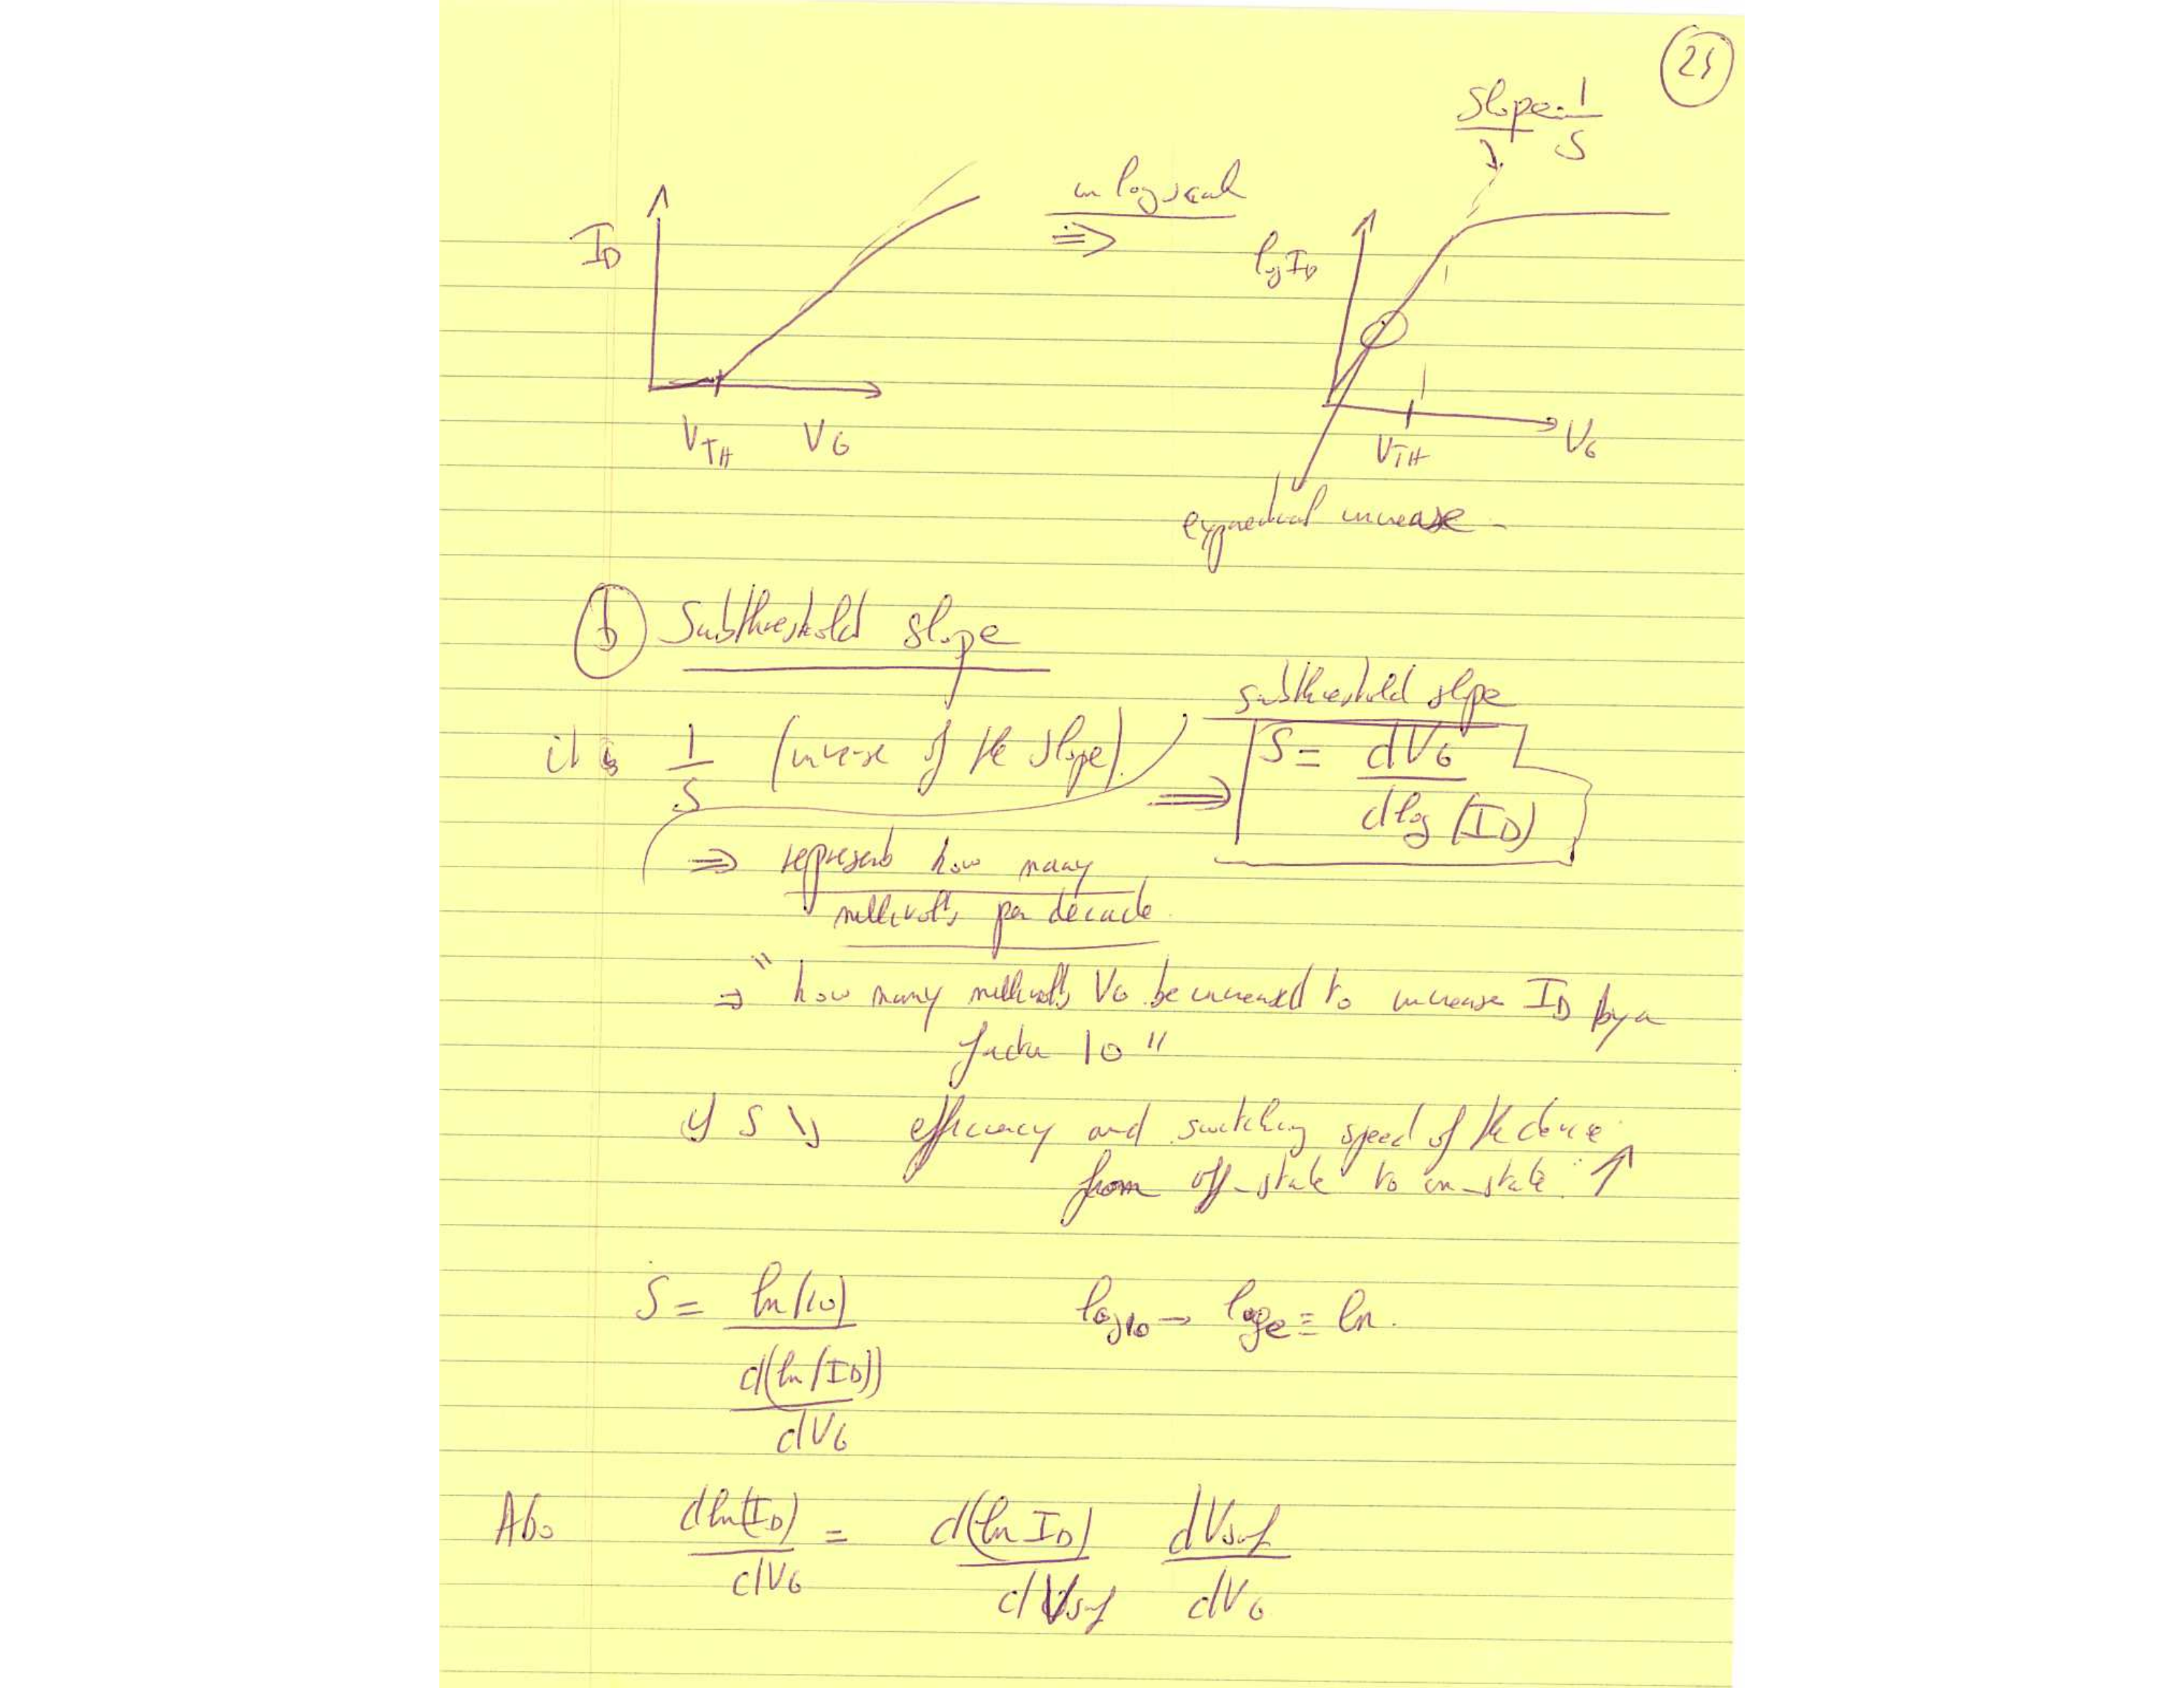 25
Slope: 1/S
in log scale
⇒
I_D
log I_D
V_TH V_G
V_TH V_G
exponential increase -
(b) Subthreshold slope
subthreshold slope
it is 1/S (inverse of the slope) ⇒ S = dV_G / dlog(I_D)
⇒ represents how many
millivolts per decade.
⇒ "how many millivolts V_G be increased to increase I_D by a
factor 10"
if S ↘ efficiency and switching speed of the device
from off-state to on-state ↑
S = ln(10) / (d(ln(I_D)) / dV_G) log10 → loge ≡ ln.
Also dln(I_D)/dV_G = d(ln I_D)/dVsurf dVsurf/dV_G